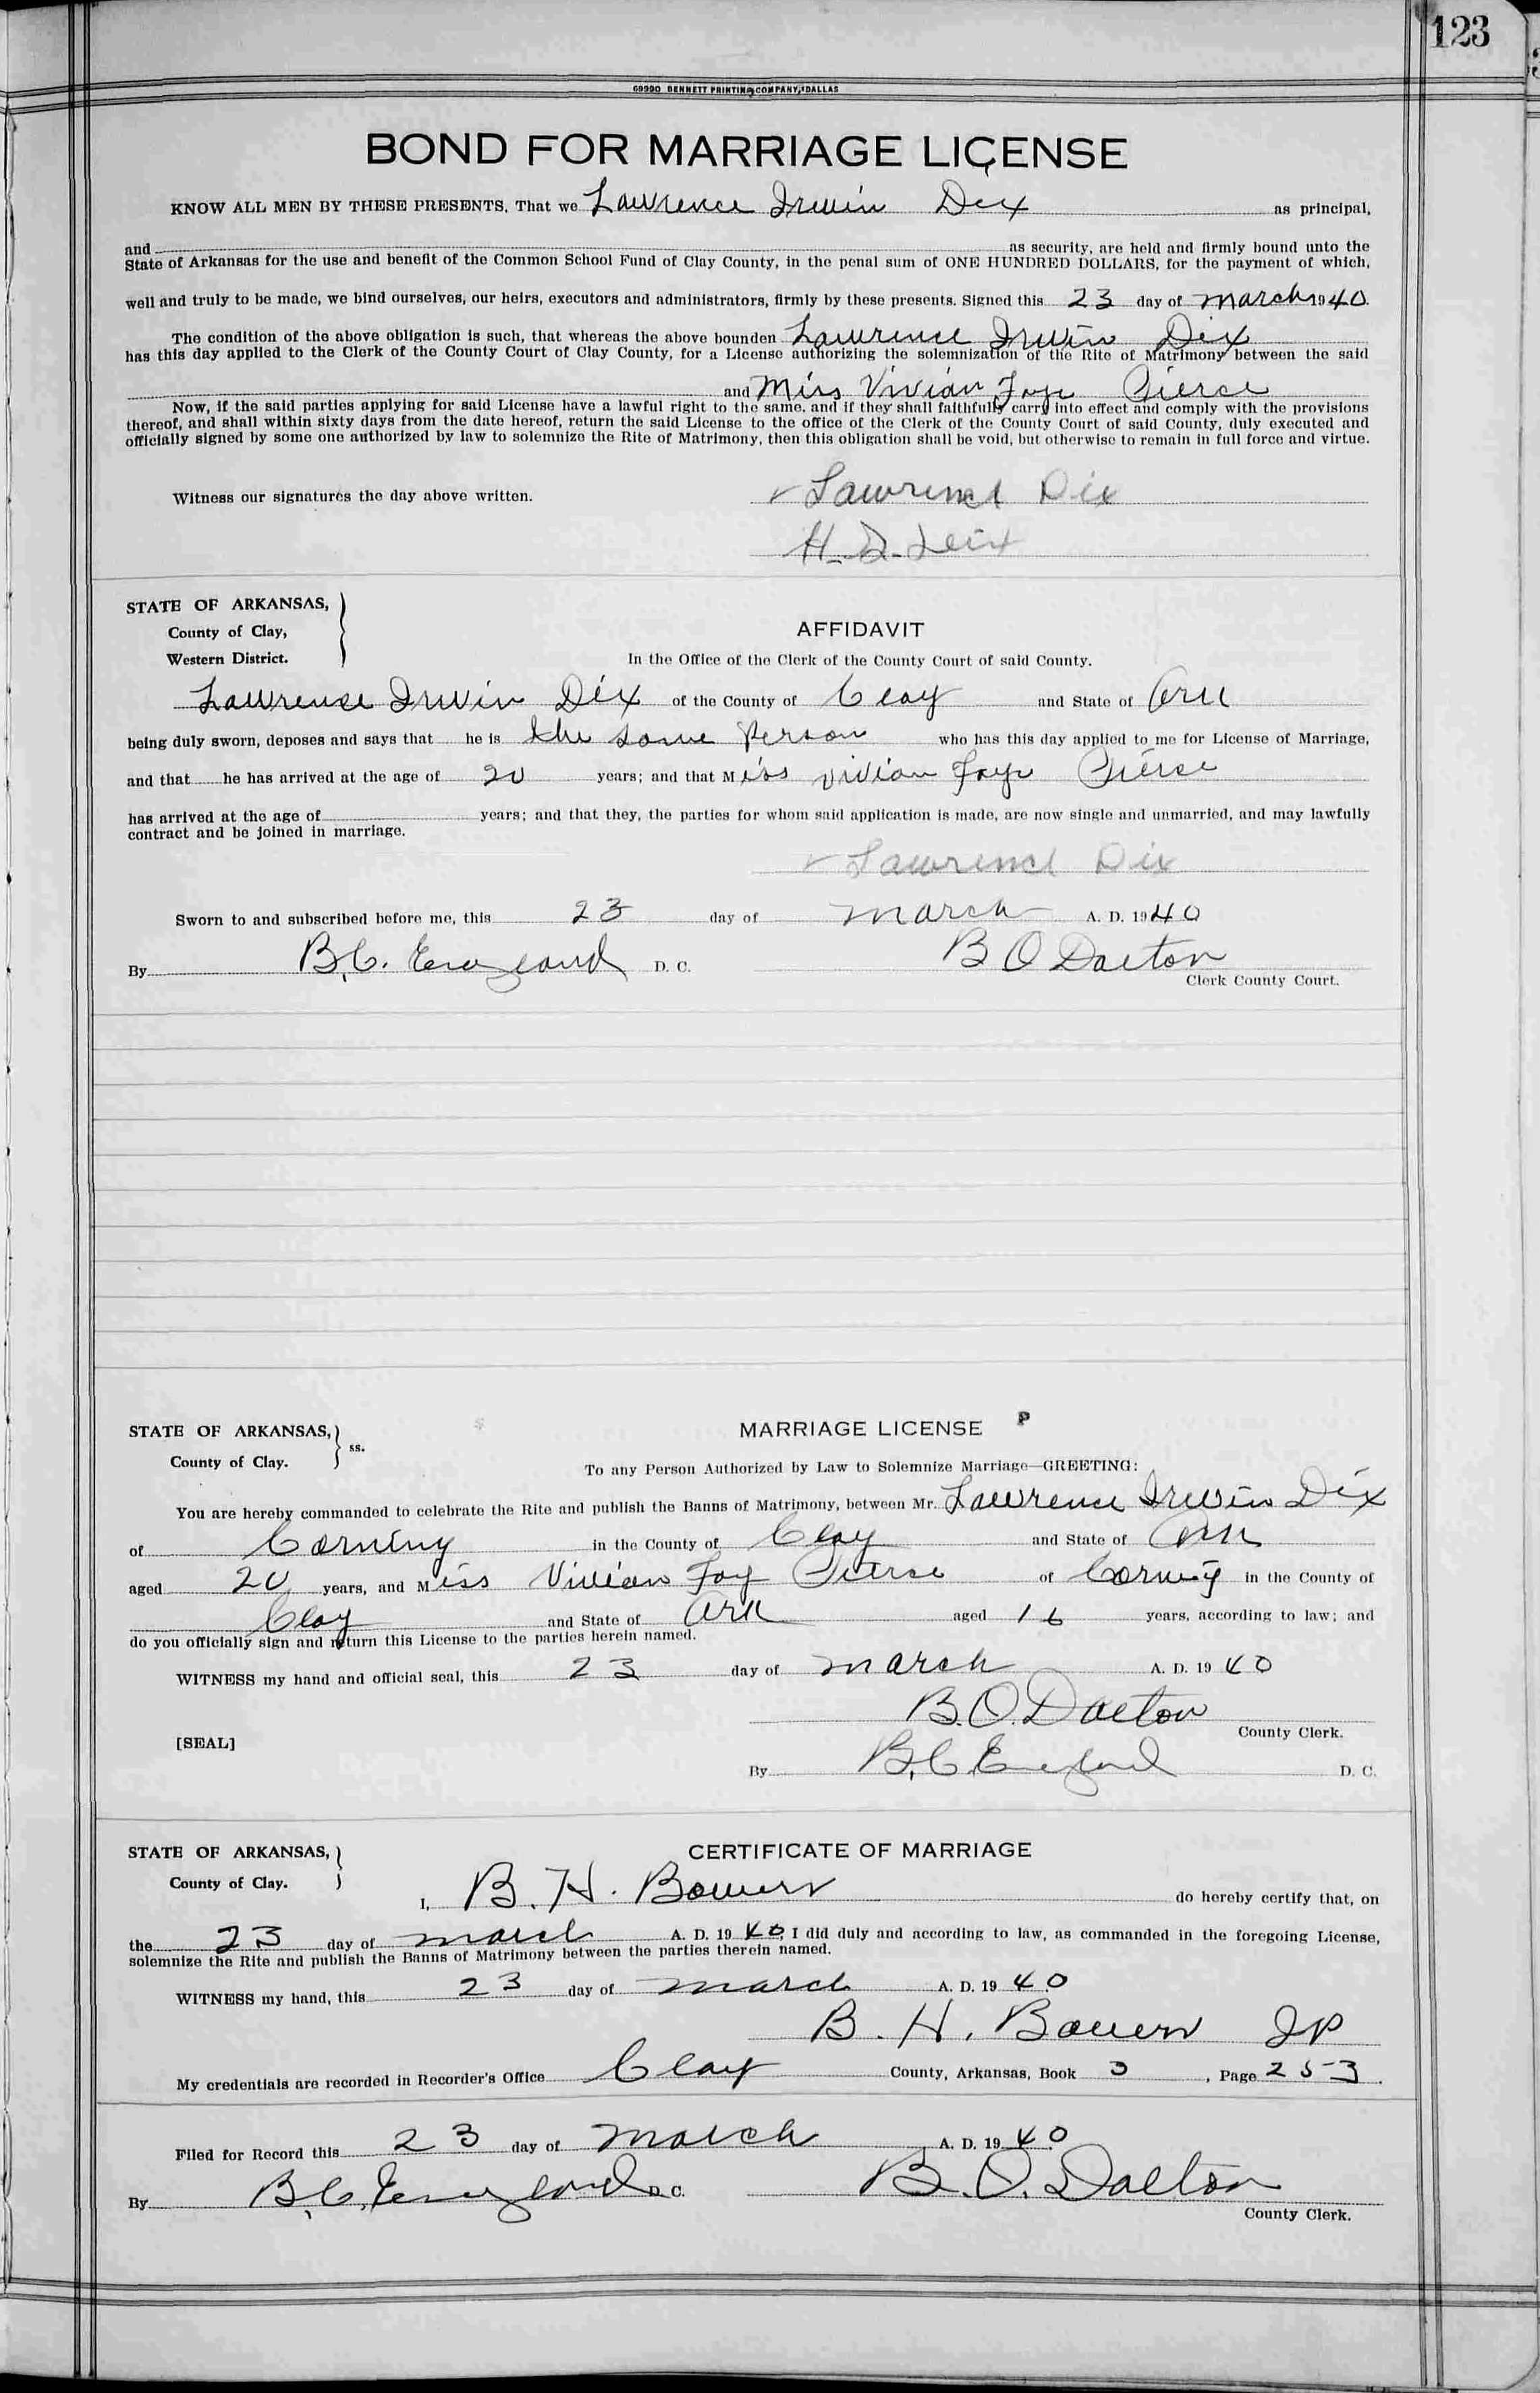 123
69990 BENNETT PRINTING COMPANY, DALLAS
BOND FOR MARRIAGE LICENSE
KNOW ALL MEN BY THESE PRESENTS, That we Lawrence Irwin Dix as principal,
and as security, are held and firmly bound unto the
State of Arkansas for the use and benefit of the Common School Fund of Clay County, in the penal sum of ONE HUNDRED DOLLARS, for the payment of which,
well and truly to be made, we bind ourselves, our heirs, executors and administrators, firmly by these presents. Signed this 23 day of march 1940
The condition of the above obligation is such, that whereas the above bounden Lawrence Irwin Dix
has this day applied to the Clerk of the County Court of Clay County, for a License authorizing the solemnization of the Rite of Matrimony between the said
and Miss Vivian Faye Pierce
Now, if the said parties applying for said License have a lawful right to the same, and if they shall faithfully carry into effect and comply with the provisions
thereof, and shall within sixty days from the date hereof, return the said License to the office of the Clerk of the County Court of said County, duly executed and
officially signed by some one authorized by law to solemnize the Rite of Matrimony, then this obligation shall be void, but otherwise to remain in full force and virtue.
Witness our signatures the day above written. Lawrence Dix
H. D. Dix
STATE OF ARKANSAS,
County of Clay,
Western District.
AFFIDAVIT
In the Office of the Clerk of the County Court of said County.
Lawrence Irwin Dix of the County of Clay and State of Ark
being duly sworn, deposes and says that he is the same Person who has this day applied to me for License of Marriage,
and that he has arrived at the age of 20 years; and that Miss Vivian Faye Pierce
has arrived at the age of years; and that they, the parties for whom said application is made, are now single and unmarried, and may lawfully
contract and be joined in marriage.
Lawrence Dix
Sworn to and subscribed before me, this 23 day of march A. D. 1940
By B.C. England D. C. B O Dalton
Clerk County Court.
STATE OF ARKANSAS,
County of Clay. ss.
MARRIAGE LICENSE P
To any Person Authorized by Law to Solemnize Marriage—GREETING:
You are hereby commanded to celebrate the Rite and publish the Banns of Matrimony, between Mr. Lawrence Irwin Dix
of Corning in the County of Clay and State of Ark
aged 20 years, and Miss Vivian Fay Pierse of Corning in the County of
Clay and State of Ark aged 16 years, according to law; and
do you officially sign and return this License to the parties herein named.
WITNESS my hand and official seal, this 23 day of march A. D. 1940
B.O. Dalton
County Clerk.
[SEAL]
By B.C England D. C.
STATE OF ARKANSAS,
County of Clay.
CERTIFICATE OF MARRIAGE
I, B. H. Bowers do hereby certify that, on
the 23 day of march A. D. 1940 I did duly and according to law, as commanded in the foregoing License,
solemnize the Rite and publish the Banns of Matrimony between the parties therein named.
WITNESS my hand, this 23 day of march A. D. 1940
B. H. Bowers JP
My credentials are recorded in Recorder's Office Clay County, Arkansas, Book 3, Page 253.
Filed for Record this 23 day of march A. D. 1940
By B.C. England D. C. B. O. Dalton
County Clerk.